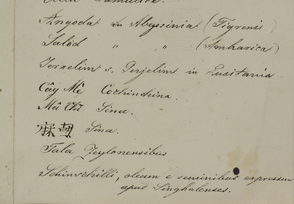 Angodat in Abyssinia (Tigrensi)
Salid " " (Amharica)
Jerxelim s. Gerjelim in Lusitania
Cây Mè Cochinchina.
Sinae.
Sinae.
Tala Zeylonensibus
oleum e seminibus expressum
apud Singhalenses.